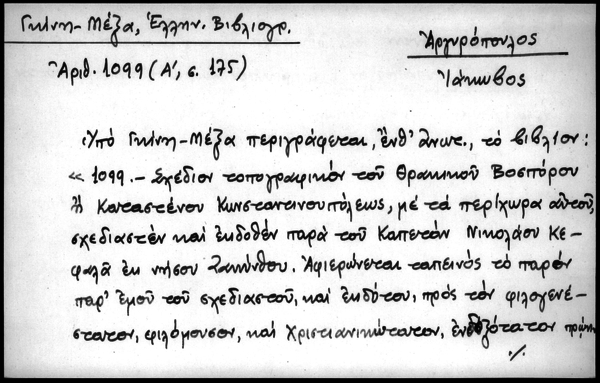 Γκίνη-Μέξα, Ἑλλην. Βιβλιογρ.
Ἀργυρόπουλος
Ἀριθ. 1099 (Α', σ. 175)
Ἰάκωβος
Ὑπό Γκίνη-Μέξα περιγράφεται, ἔνθ' ἄνωτ., τό βιβλίον:
« 1099.- Σχέδιον τοπογραφικόν τοῦ Θρακικοῦ Βοσπόρου
ἤ Καταστένου Κωνσταντινουπόλεως, μέ τά περίχωρα αὐτοῦ,
σχεδιασθέν καί ἐκδοθέν παρά τοῦ Καπετάν Νικολάου Κε-
φαλᾶ ἐκ νήσου Ζακύνθου. Ἀφιερώνεται ταπεινός τό παρόν
παρ' ἐμοῦ τοῦ σχεδιαστοῦ, καί ἐκδότου, πρός τόν φιλογενέ-
στατον, φιλόμουσον, καί Χριστιανικώτατον, ἐνδοξότατον πρώην
./.